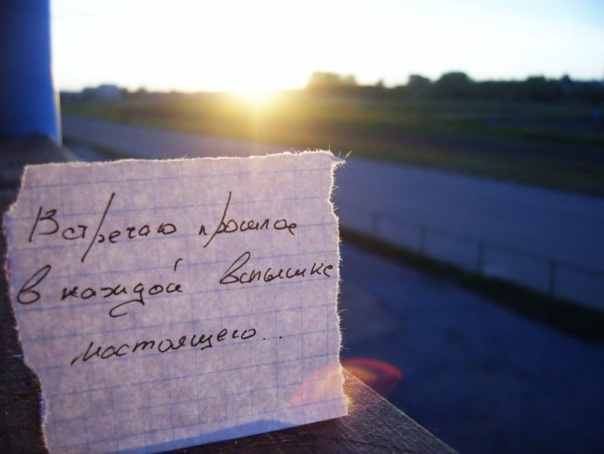 Встречаю прошлое
в каждой вспышке
настоящего...